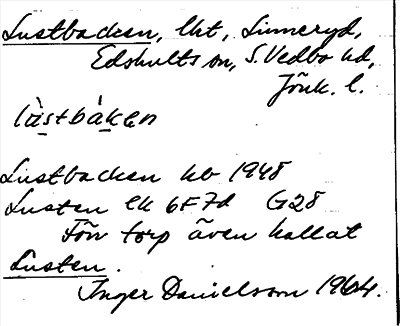 Lustbacken, lht, Linneryd,
Edshults sn, S. Vedbo hd,
Jönk. l.
làstbàkən
Lustbacken hb 1948
Lusten ek 6F7d G28
Förr torp även kallat
Lusten.
Inger Danielsson 1964.